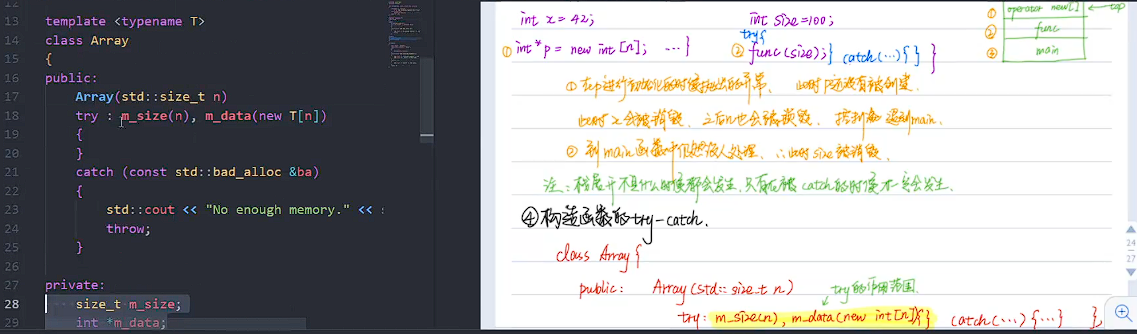 12
13 template <typename T>
14 class Array
15 {
16 public:
17 Array(std::size_t n)
18 try : m_size(n), m_data(new T[n])
19 {
20 }
21 catch (const std::bad_alloc &ba)
22 {
23 std::cout << "No enough memory." <<
24 throw;
25 }
26
27 private:
28 size_t m_size;
29 int *m_data;
int x = 42;
int size=100;
try{
① int*p = new int[n]; …}
② func(size);} catch(…){} }
① operator new[] ← top
② func
③ main
① 在p进行初始化的时候抛出的异常. 此时p还没有被创建.
此时x会被销毁. 之后n也会被销毁. 控制流回到main.
② 到main函数中仍然没人处理. ∴此时size被销毁.
注: 栈展开不是什么时候都会发生. 只有在被catch的时候才一定会发生.
④构造函数的try-catch.
class Array{
public: Array(std::size_t n)
try的作用范围.
try: m_size(n), m_data(new int[n]){} catch(…){…} },
24
27